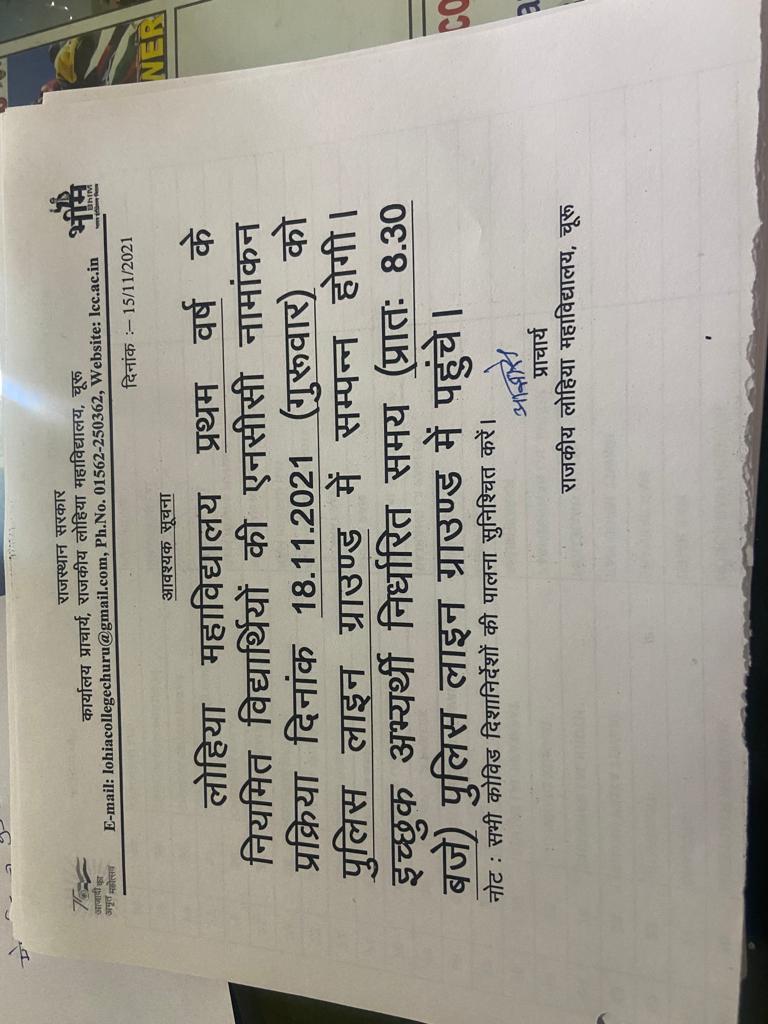 राजस्थान सरकार
कार्यालय प्राचार्य, राजकीय लोहिया महाविद्यालय, चूरू
E-mail: lohiacollegechuru@gmail.com, Ph.No. 01562-250362, Website: lcc.ac.in
आज़ादी का
अमृत महोत्सव
भीम
BHIM
दिनांक :– 15/11/2021
आवश्यक सूचना
लोहिया महाविद्यालय प्रथम वर्ष के
नियमित विद्यार्थियों की एनसीसी नामांकन
प्रक्रिया दिनांक 18.11.2021 (गुरूवार) को
पुलिस लाइन ग्राउण्ड में सम्पन्न होगी।
इच्छुक अभ्यर्थी निर्धारित समय (प्रातः 8.30
बजे) पुलिस लाइन ग्राउण्ड में पहुंचे।
नोट : सभी कोविड दिशानिर्देशों की पालना सुनिश्चित करें।
प्राचार्य
राजकीय लोहिया महाविद्यालय, चूरू
NER
CO